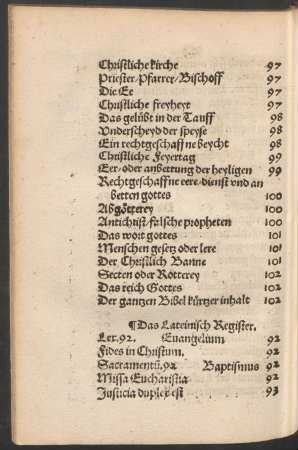 Christliche kirche 97
Priester/Pfarrer/Bischoff 97
Die Ee 97
Christliche freyheyt 97
Das gelübt in der Tauff 98
Vnderscheyd der speyse 98
Ein rechtgeschaffne beycht 98
Christliche Feyertag 99
Eer/oder anbettung der heyligen 99
Rechtgeschaffne eere/dienst vnd an
betten gottes 100
Abgötterey 100
Antichrist/falsche propheten 100
Das wort gottes 101
Menschen gesetz oder lere 101
Der Christlich Banne 101
Secten oder Rotterey 102
Das reich Gottes 102
Der gantzen Bibel kürtzer inhalt 102
¶Das Lateinisch Register.
Lex.92. Euangelium 92
Fides in Christum. 92
Sacramentū.92 Baptismus 92
Missa Eucharistia 92
Iusticia duplex est 93